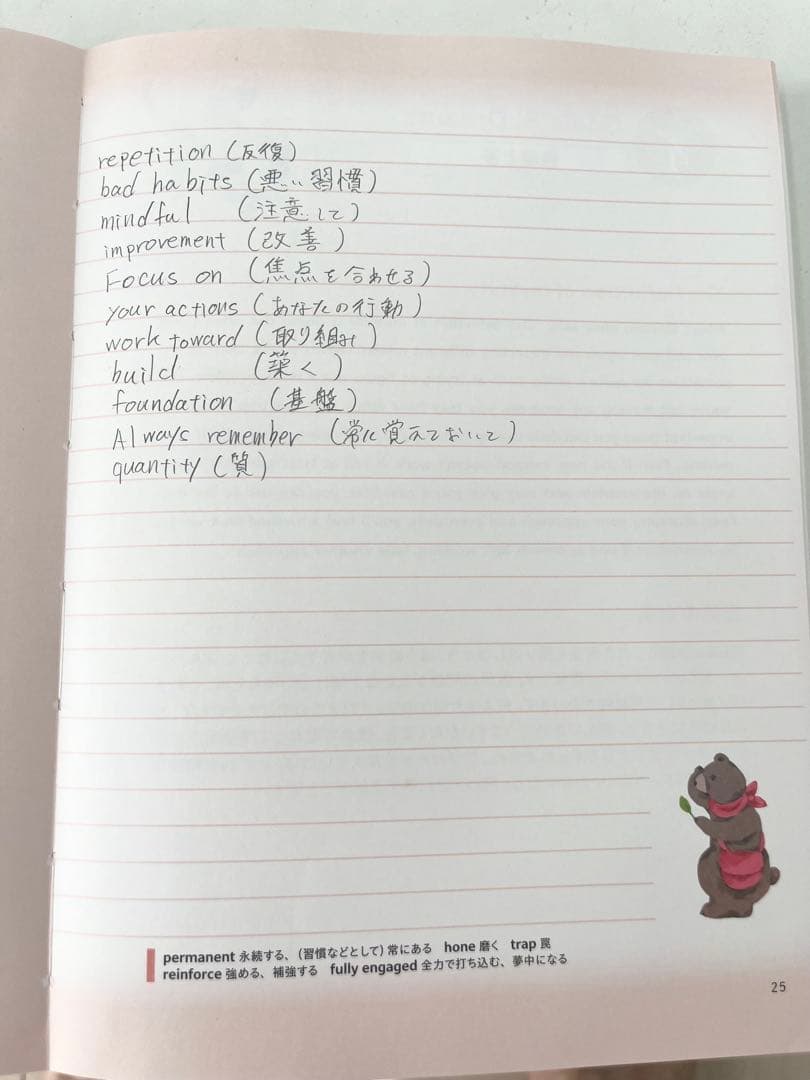 repetition (反復)
bad habits (悪い習慣)
mindful (注意して)
improvement (改善)
Focus on (焦点を合わせる)
your actions (あなたの行動)
work toward (取り組み)
build (築く)
foundation (基盤)
Always remember (常に覚えておいて)
quantity (質)
permanent 永続する、(習慣などとして) 常にある hone 磨く trap 罠
reinforce 強める、補強する fully engaged 全力で打ち込む、夢中になる
25